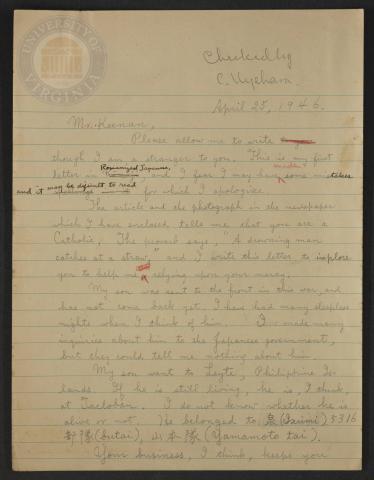 UNIVERSITY OF VIRGINIA
Checked by
C. Uyehara.
April 25, 1946.
Mr. Keenan,
Please allow me to write
though I am a stranger to you. This is my first
Romanized Japanese, made
letter in and I fear I may have some mistakes
and it may be difficult to read
for which I apologize.
The article and the photograph in the newspaper
which I have enclosed tells me that you are a
Catholic. The proverb says, "A drowning man
catches at a straw," and I write this letter to implore
you to help me relying upon your mercy.
My son was sent to the front in this war, and
has not come back yet. I have had many sleepless
nights when I think of him. I made many
inquiries about him to the Japanese government,
but they could tell me nothing about him.
My son went to Leyte, Philippine Is-
lands. If he is still living, he is, I think,
at Tacloban. I do not know whether he is
alive or not. He belonged to 泉 (Izumi) 5316
部隊 (butai), 山本隊 (Yamamoto tai).
Your business, I think, keeps you